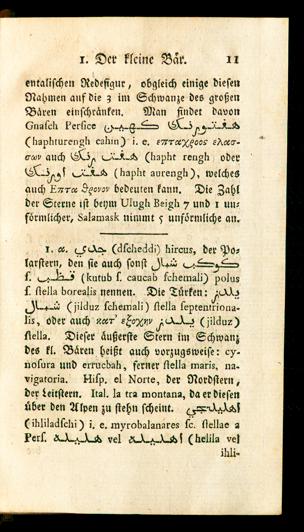 1. Der kleine Bär. 11
entalischen Redefigur, obgleich einige diesen
Nahmen auf die 3 im Schwanze des großen
Bären einschränken. Man findet davon
Gnasch Persice هفتورنك كهين
(haphturengh cahin) i. e. επταχροος ελασ-
σων auch هفت رنك (hapht rengh oder
هفت اورنك (hapht aurengh), welches
auch Επτα θρονον bedeuten kann. Die Zahl
der Sterne ist beym Ulugh Beigh 7 und 1 un-
förmlicher, Salamask nimmt 5 unförmliche an.
1. α. جدي (dscheddi) hircus, der Po-
larstern, den sie auch sonst كوكب شمال
s. قطب (kutub s. caucab schemali) polus
s. stella borealis nennen. Die Türken: يلدز
شمال (jilduz schemali) stella septentriona-
lis, oder auch κατ' εξοχην يلدز (jilduz)
stella. Dieser äußerste Stern im Schwanz
des kl. Bären heißt auch vorzugsweise: cy-
nosura und errucbah, ferner stella maris, na-
vigatoria. Hisp. el Norte, der Nordstern,
der Leitstern. Ital. la tra montana, da er diesen
über den Alpen zu stehn scheint. اهليلجي
(ihliladschi) i. e. myrobalanares sc. stellae a
Pers. هليله vel اهليله (helila vel
ihli-